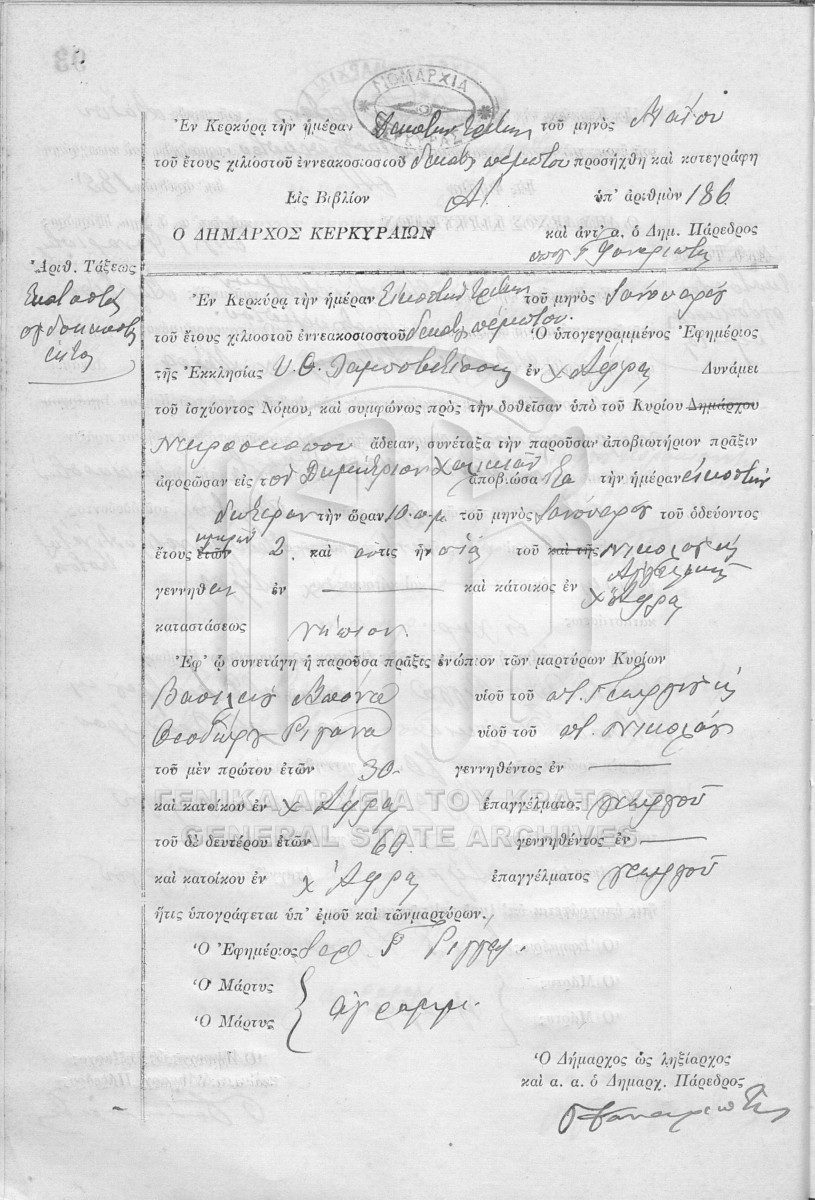 93
ΝΟΜΑΡΧΙΑ
ΚΕΡΚΥΡΑΣ
Ἐν Κερκύρᾳ τὴν ἡμέραν Δεκάτην τρίτην τοῦ μηνὸς Μαΐου
τοῦ ἔτους χιλιοστοῦ ἐννεακοσιοσιοῦ δεκάτου πέμπτου προσήχθη καὶ κατεγράφη
Εἰς Βιβλίον Α! ὑπ' ἀριθμὸν 186
Ο ΔΗΜΑΡΧΟΣ ΚΕΡΚΥΡΑΙΩΝ καὶ ἀντ' α. ὁ Δημ. Πάρεδρος
Φαναριώτης
Ἀριθ. Τάξεως
Ἑκατοστὴ
ὀγδοηκοστὴ
ἕκτη
Ἐν Κερκύρᾳ τὴν ἡμέραν Εἰκοστὴν τρίτην τοῦ μηνὸς Ἰανουαρίου
τοῦ ἔτους χιλιοστοῦ ἐννεακοσιοστοῦ δεκάτου πέμπτου. Ὁ ὑπογεγραμμένος Ἐφημέριος
τῆς Ἐκκλησίας Υ. Θ. ἐν χ Ἄφρᾳ Δυνάμει
τοῦ ἰσχύοντος Νόμου, καὶ συμφώνως πρὸς τὴν δοθεῖσαν ὑπὸ τοῦ Κυρίου Δημάρχου
Νεκροσκόπου ἄδειαν, συνέταξα τὴν παροῦσαν ἀποβιωτήριον πρᾶξιν
ἀφορῶσαν εἰς τοῦ Δημήτριον ἀποβιώσαντα τὴν ἡμέραν εἰκοστὴν
δευτέραν τὴν ὥραν 10 π.μ. τοῦ μηνὸς Ἰανουαρίου τοῦ ὁδεύοντος
ἡμερῶν
ἔτους ἐτῶν 2. καὶ ὅστις ἦν υἱὸς τοῦ καὶ τῆς Νικολάου κ
Ἀγγελικῆς
γεννηθεὶς ἐν — καὶ κάτοικος ἐν χ Ἄφρᾳ
καταστάσεως νήπιον
Ἐφ' ᾧ συνετάγη ἡ παροῦσα πρᾶξις ἐνώπιον τῶν μαρτύρων Κυρίων
Βασιλείου υἱοῦ τοῦ ποτ. Γεωργίου κ
Θεοδώρου Ριγανᾶ υἱοῦ τοῦ ποτ. Νικολάου
τοῦ μὲν πρώτου ἐτῶν 30 γεννηθέντος ἐν —
καὶ κατοίκου ἐν χ Ἄφρᾳ ἐπαγγέλματος γεωργοῦ
τοῦ δὲ δευτέρου ἐτῶν 60 γεννηθέντος ἐν —
καὶ κατοίκου ἐν χ Ἄφρᾳ ἐπαγγέλματος γεωργοῦ
ἥτις ὑπογράφεται ὑπ' ἐμοῦ καὶ τῶν μαρτύρων.
Ὁ Ἐφημέριος
Ὁ Μάρτυς
Ὁ Μάρτυς ἀγράμμ.
Ὁ Δήμαρχος ὡς ληξίαρχος
καὶ α. α. ὁ Δημαρχ. Πάρεδρος
Φαναριώτης
ΓΕΝΙΚΑ ΑΡΧΕΙΑ ΤΟΥ ΚΡΑΤΟΥΣ
GENERAL STATE ARCHIVES